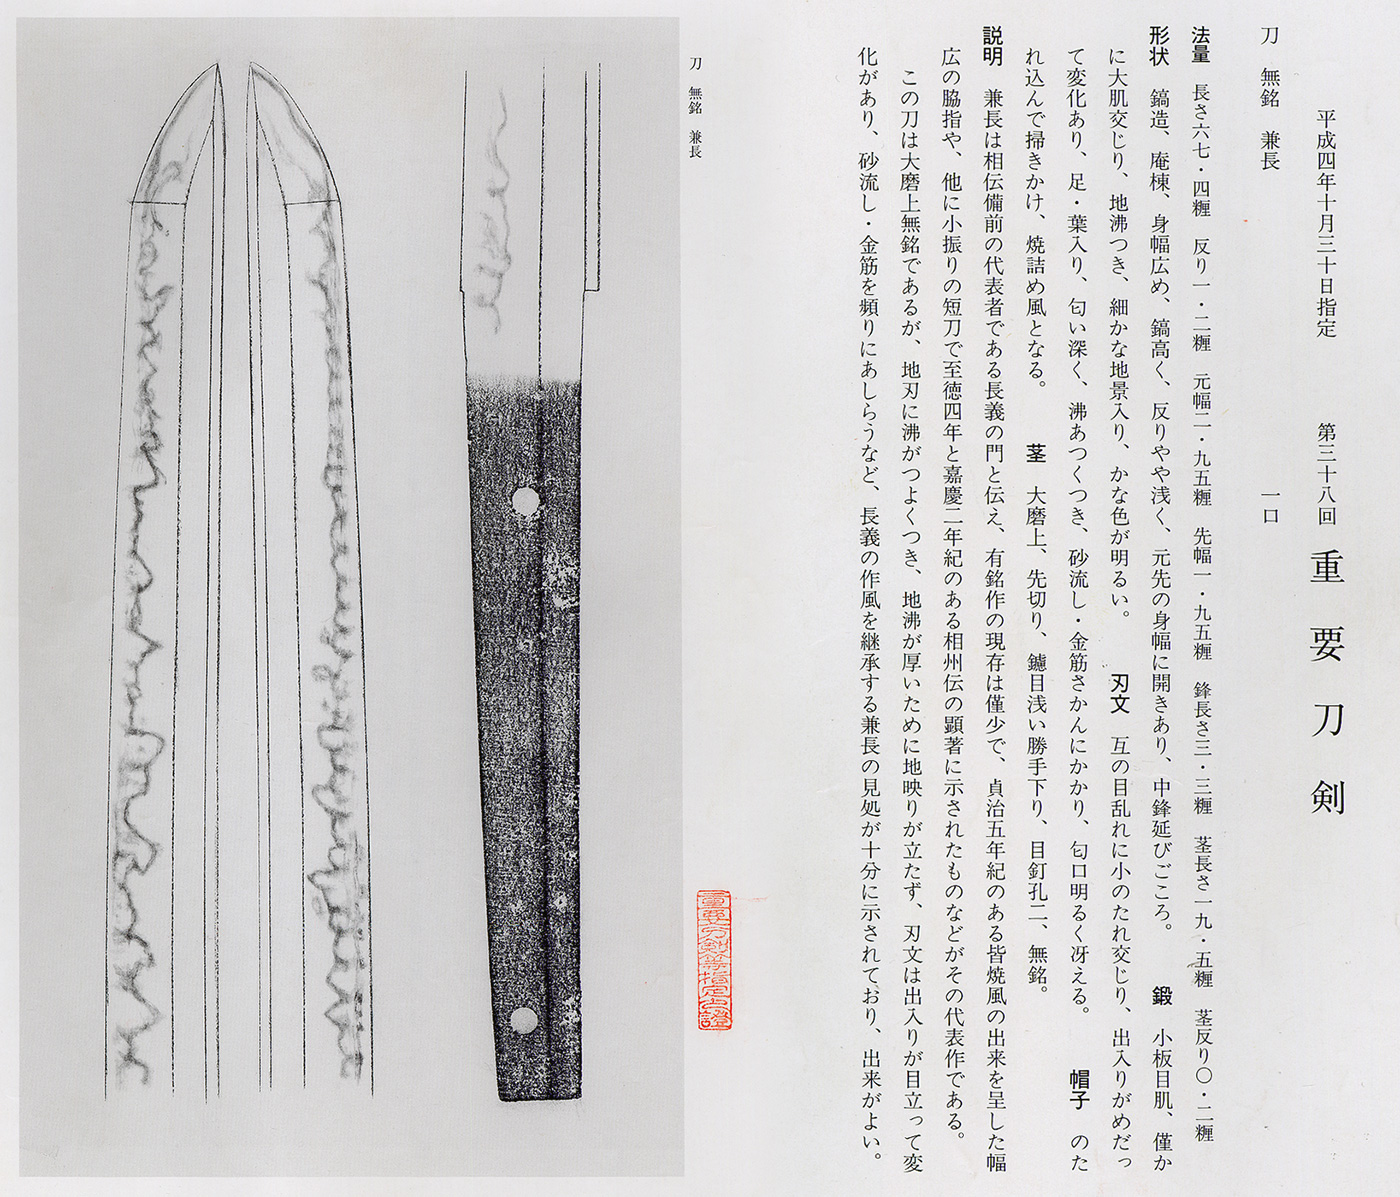 平成四年十月三十日指定　　第三十八回　重要刀剣
刀　無銘　兼長　　一口
法量　長さ六七・四糎　反り一・二糎　元幅二・九五糎　先幅一・九五糎　鋒長さ三・三糎　茎長さ一九・五糎　茎反り〇・二糎
形状　鎬造、庵棟、身幅広め、鎬高く、反りやや浅く、元先の身幅に開きあり、中鋒延びごころ。　鍛　小板目肌、僅か
に大肌交じり、地沸つき、細かな地景入り、かな色が明るい。　刃文　互の目乱れに小のたれ交じり、出入りがめだっ
て変化あり、足・葉入り、匂い深く、沸あつくつき、砂流し・金筋さかんにかかり、匂口明るく冴える。　帽子　のた
れ込んで掃きかけ、焼詰め風となる。　茎　大磨上、先切り、鑢目浅い勝手下り、目釘孔二、無銘。
説明　兼長は相伝備前の代表者である長義の門と伝え、有銘作の現存は僅少で、貞治五年紀のある皆焼風の出来を呈した幅
広の脇指や、他に小振りの短刀で至徳四年と嘉慶二年紀のある相州伝の顕著に示されたものなどがその代表作である。
この刀は大磨上無銘であるが、地刃に沸がつよくつき、地沸が厚いために地映りが立たず、刃文は出入りが目立って変
化があり、砂流し・金筋を頻りにあしらうなど、長義の作風を継承する兼長の見処が十分に示されており、出来がよい。
刀　無銘　兼長
重要刀剣等指定之證